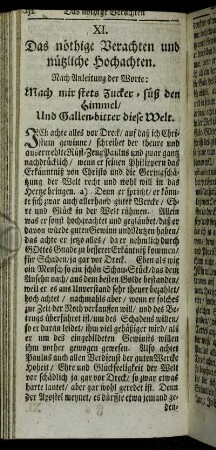 Das nöthige Verachten
XI.
Das nöthige Verachten und
nützliche Hochachten.
Nach Anleitung der Worte:
Mach mir stets Zucker-süß den
Himmel/
Und Gallen-bitter diese Welt.
Ich achte alles vor Dreck/ auf daß ich Chri-
stum gewinne/ schreibet der theure und
auserwehlte Rüst-Zeug Paulus und zwar gantz
nachdrücklich/ wenn er seinen Philippern das
Erkäntniß von Christo und die Geringschä-
tzung der Welt recht und wohl will in das
Hertze bringen. a) Denn er spricht/ er könn-
te sich zwar auch allerhand guter Wercke/ Eh-
re und Glück in der Welt rühmen. Allein
was er sonst hochgeachtet und gegläubet/ daß er
davon würde guten Gewinn und Nutzen haben/
das achte er jetzo alles/ da er nehmlich durch
GOttes Gnade zu besserer Erkäntniß kommen/
für Schaden/ ja gar vor Dreck. Eben als wie
ein Mensch so ein schön Schau-Stück/ das dem
Ansehen nach/ aus dem besten Golde bestanden/
weil er es am Unverstand sehr theuer bezahlet/
hoch achtet/ nachmahls aber/ wenn er solches
zur Zeit der Noth verkauffen will/ und des Be-
trugs überführet ist/ um des Schadens willen/
so er daran leidet/ ihm viel gehäßiger wird/ als
er um des eingebildeten Gewinsts willen
ihm vorher gewogen gewesen. Also achtet
Paulus auch allen Verdienst der guten Wercke
Hoheit/ Ehre und Glückseeligkeit der Welt
vor schädlich ja gar vor Dreck/ so zwar etwas
harte lautet/ aber gar wohl geredet ist. Denn
Der Apostel meynet/ es dürffte etwa jemand ge-
den-